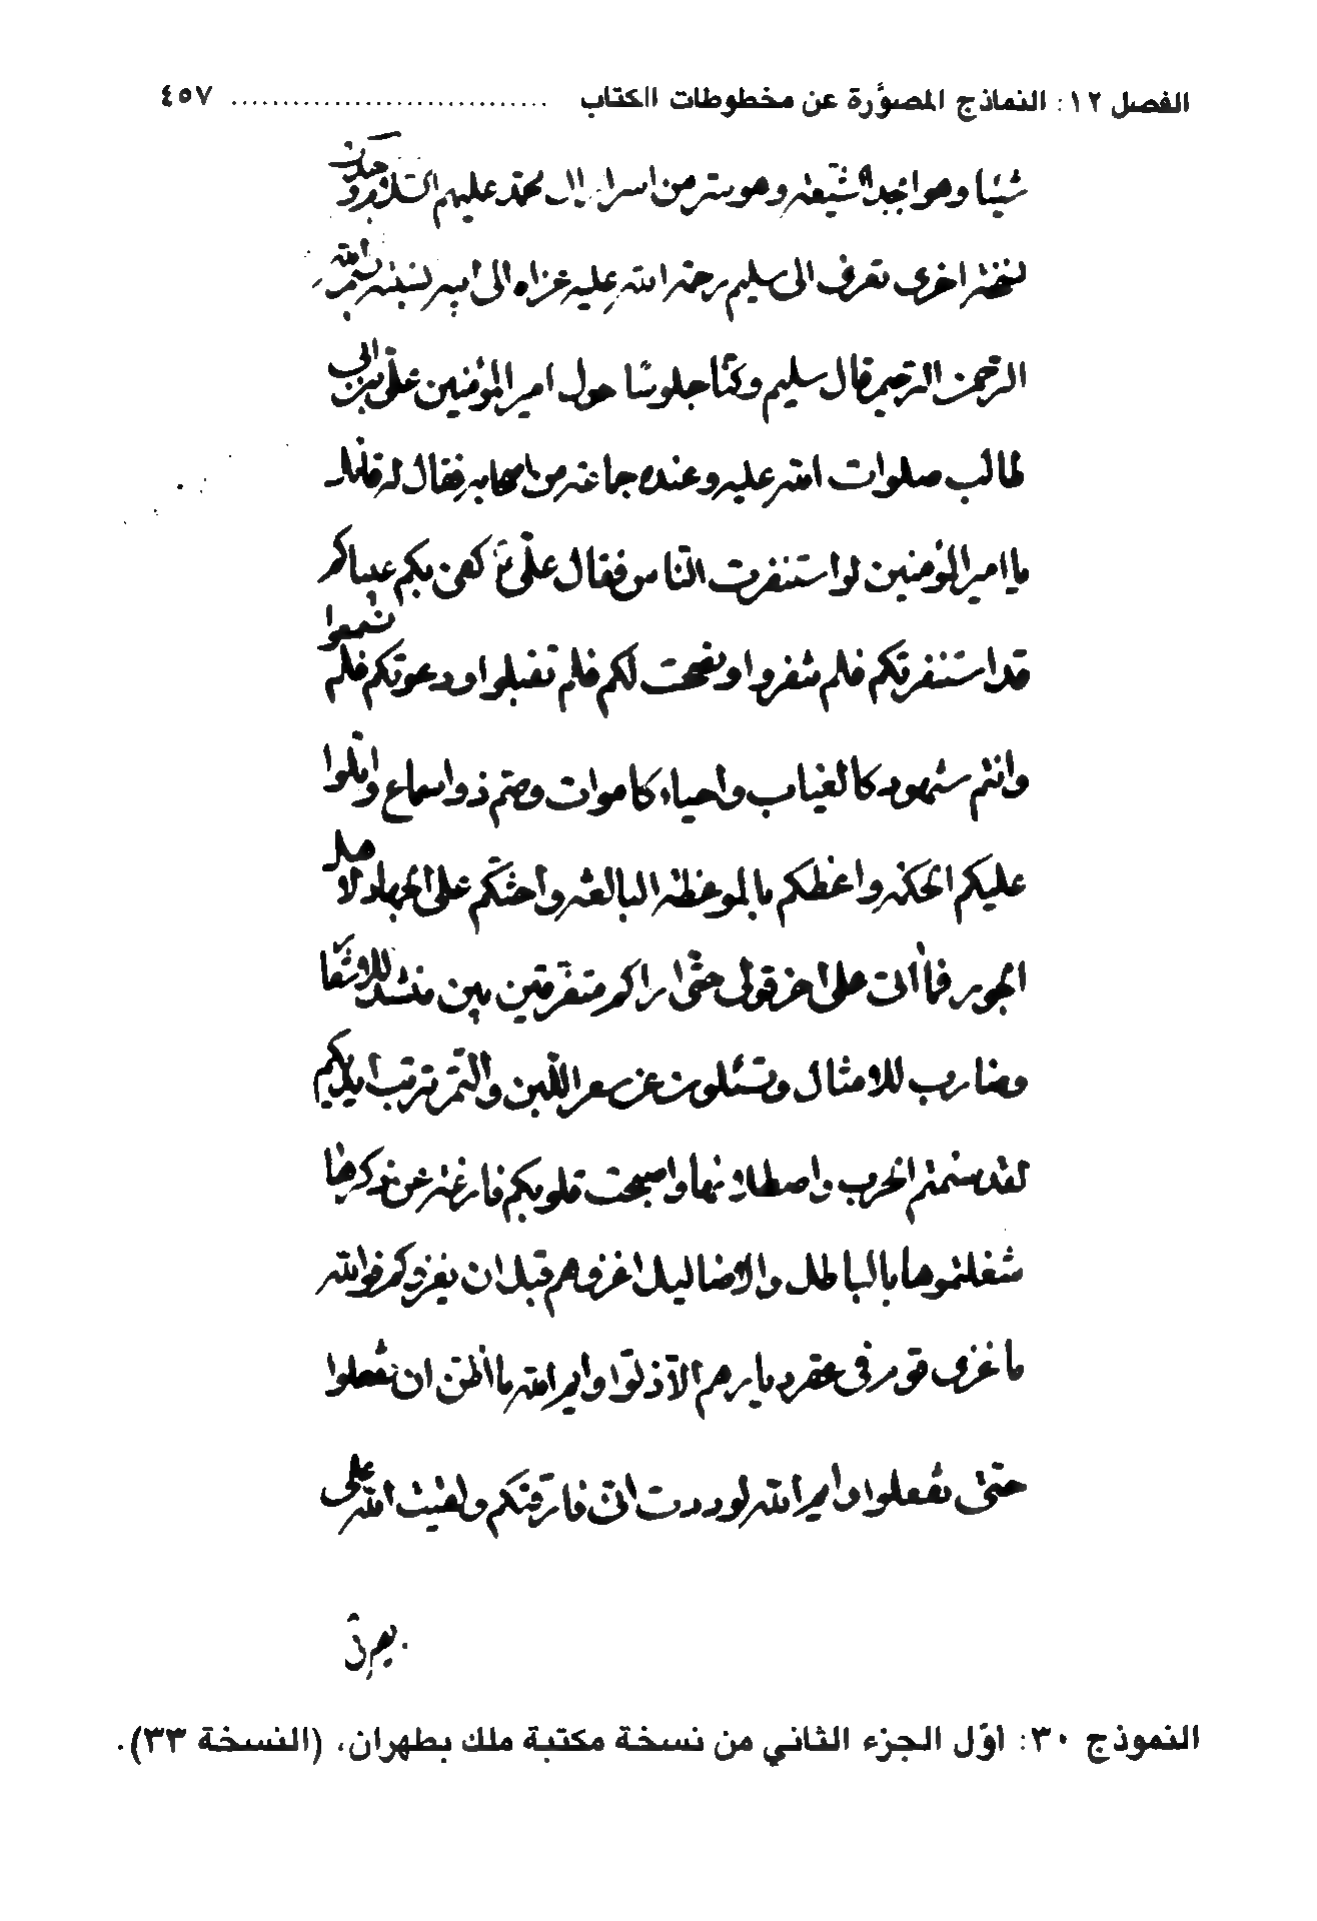 الفصل ١٢: النماذج المصوَّرة عن مخطوطات الكتاب .............................. ٤٥٧
شيئا وهو ابجد الشيعة وهو سر من اسرار ال محمد عليهم السلام
نسخة اخرى تعرف الى سليم رحمة الله عليه عزاه الى ابيه بسم الله
الرحمن الرحيم قال سليم وكنا جلوسا حول امير المؤمنين على بن ابى
طالب صلوات الله عليه وعنده جماعة من اصحابه فقال له قائل
يا امير المؤمنين لو استنفرت الناس فقال على ع
قد استنفرتكم فلم تنفروا ونصحت لكم فلم تقبلوا ودعوتكم فلم تسمعوا
وانتم شهود كالغياب واحياء كاموات وصم ذو اسماع واتلوا
عليكم الحكمة واعظكم بالموعظة البالغة واحثكم على الجهاد لاهل
الجور فما اتى على اخر قولى حتى اراكم متفرقين بين منشد للاشعار
وضارب للامثال وتسئلون عن سعر اللبن والتمر تربت ايديكم
لقد سئمتم الحرب واصطلائها واصبحت قلوبكم فارغة عن ذكرها
شغلتموها بالباطل والاضاليل اغزوهم قبل ان يغزوكم فوالله
ما غزى قوم فى عقر ديارهم الا ذلوا وايم الله ما اظن ان تفعلوا
حتى تفعلوا وايم الله لوددت انى فارقتكم ولقيت الله على
النموذج ٣٠: أوّل الجزء الثاني من نسخة مكتبة ملك بطهران، (النسخة ٣٣).